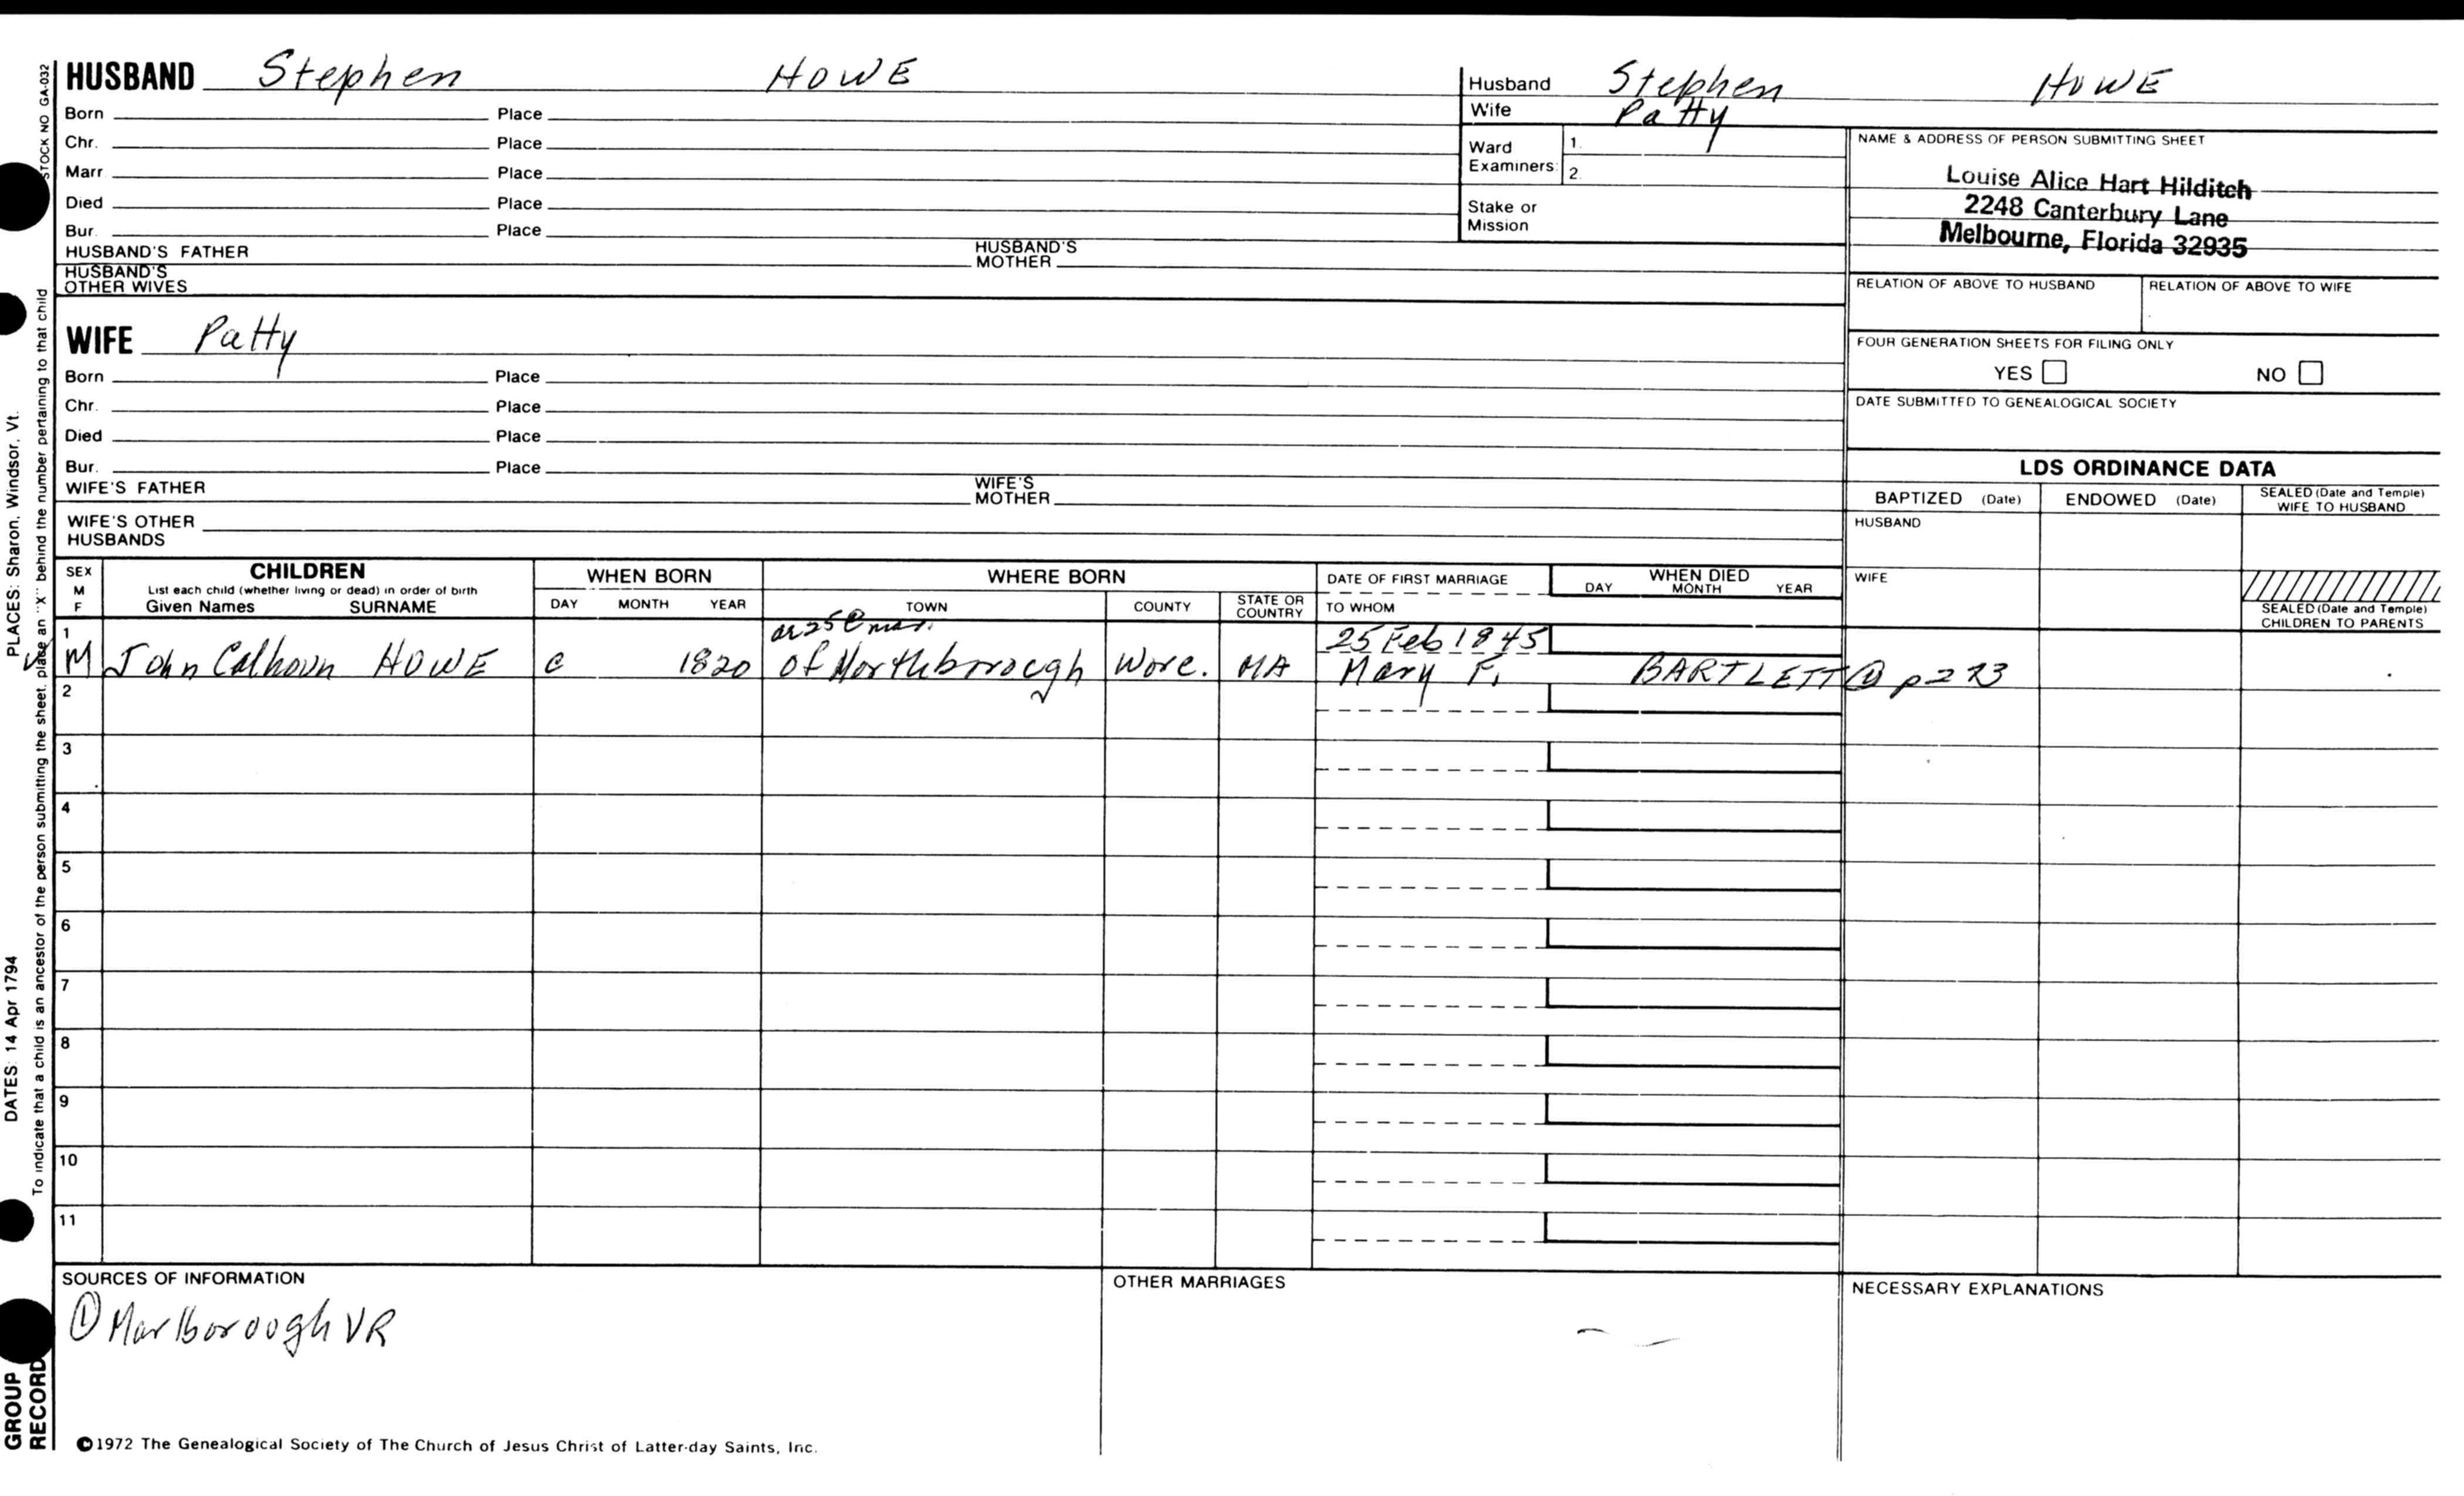 HUSBAND Stephen HOWE
Born Place
Chr. Place
Marr Place
Died Place
Bur. Place
HUSBAND'S FATHER HUSBAND'S MOTHER
HUSBAND'S OTHER WIVES
WIFE Patty
Born Place
Chr. Place
Died Place
Bur. Place
WIFE'S FATHER WIFE'S MOTHER
WIFE'S OTHER HUSBANDS
Husband Stephen HOWE
Wife Patty
Ward Examiners: 1. 2.
Stake or Mission
NAME & ADDRESS OF PERSON SUBMITTING SHEET
Louise Alice Hart Hilditch
2248 Canterbury Lane
Melbourne, Florida 32935
RELATION OF ABOVE TO HUSBAND RELATION OF ABOVE TO WIFE
FOUR GENERATION SHEETS FOR FILING ONLY
YES NO
DATE SUBMITTED TO GENEALOGICAL SOCIETY
LDS ORDINANCE DATA
BAPTIZED (Date) ENDOWED (Date) SEALED (Date and Temple) WIFE TO HUSBAND
HUSBAND
WIFE
SEALED (Date and Temple) CHILDREN TO PARENTS
SEX M F CHILDREN WHEN BORN WHERE BORN DATE OF FIRST MARRIAGE WHEN DIED
List each child (whether living or dead) in order of birth
Given Names SURNAME DAY MONTH YEAR TOWN COUNTY STATE OR COUNTRY TO WHOM DAY MONTH YEAR
ae 25 @ mar. 25 Feb 1845
1 M John Calhoun HOWE c 1820 of Northborough Worc. MA Mary F. BARTLETT ① p 273
2
3
4
5
6
7
8
9
10
11
SOURCES OF INFORMATION OTHER MARRIAGES NECESSARY EXPLANATIONS
① Marlborough VR
©1972 The Genealogical Society of The Church of Jesus Christ of Latter-day Saints, Inc.
STOCK NO GA-032
To indicate that a child is an ancestor of the person submitting the sheet, place an "X" behind the number pertaining to that child
DATES: 14 Apr 1794 PLACES: Sharon, Windsor, Vt.
GROUP RECORD